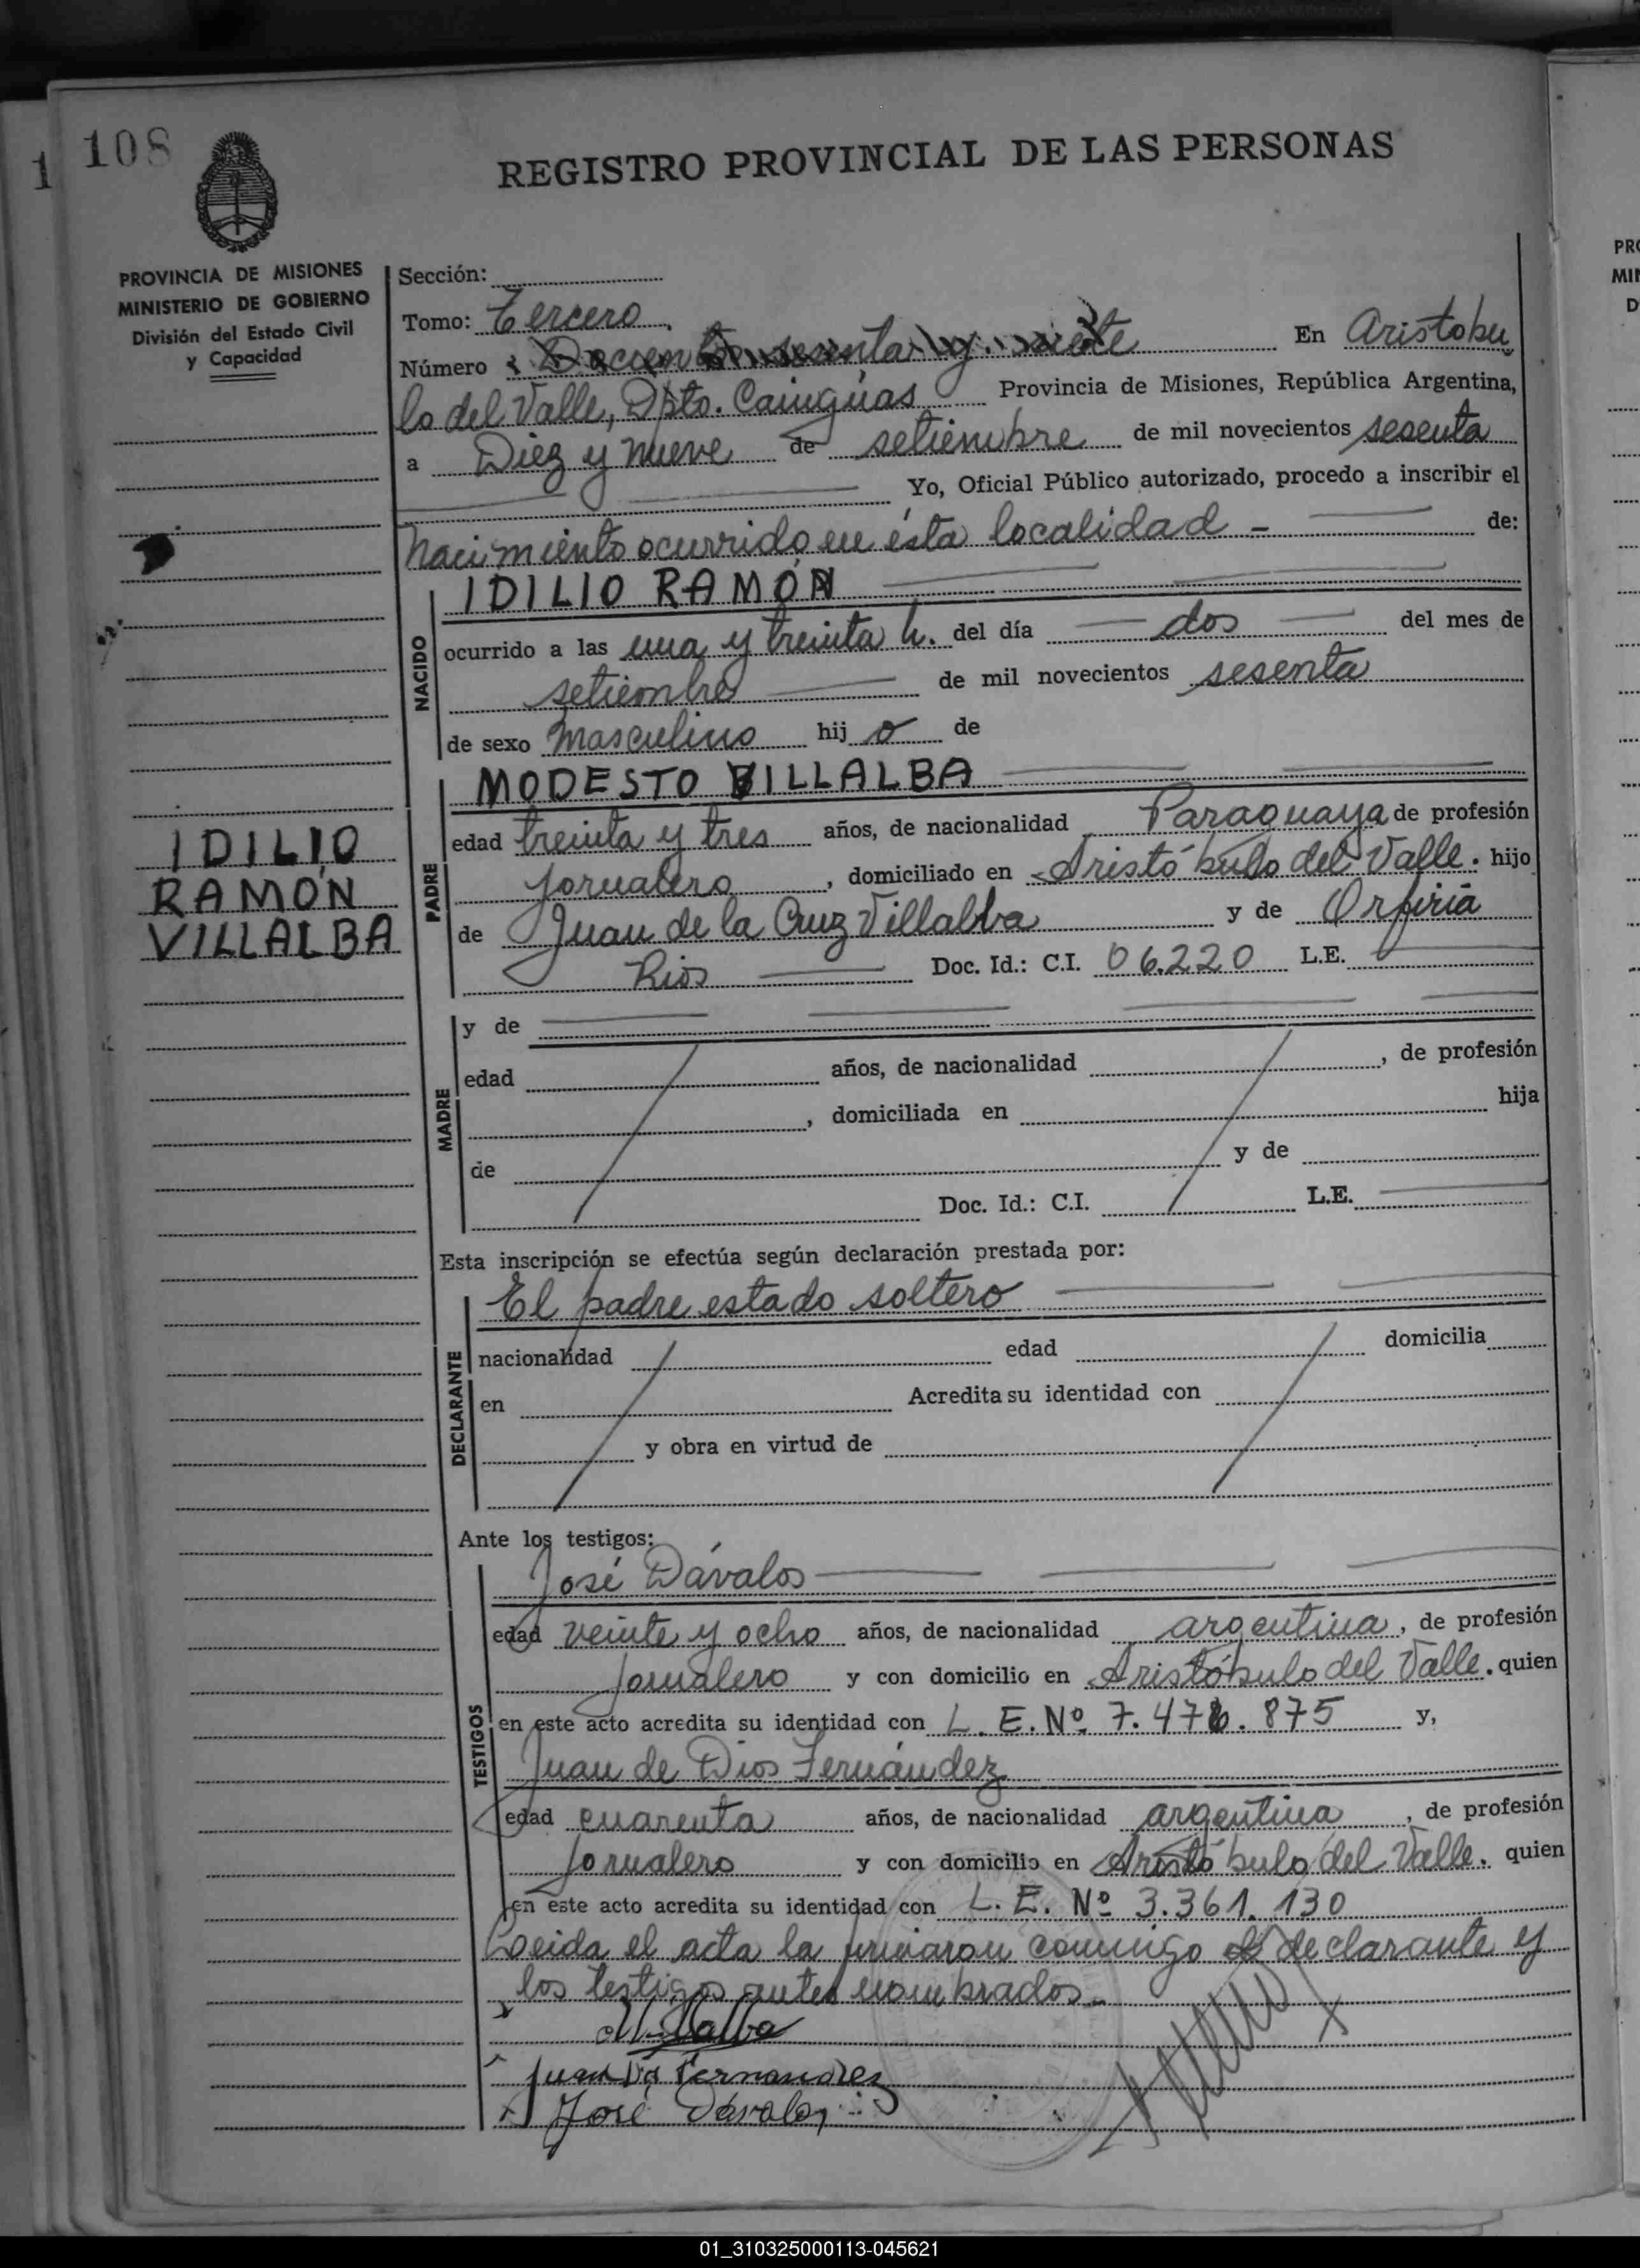 1 108
REGISTRO PROVINCIAL DE LAS PERSONAS
PROVINCIA DE MISIONES
MINISTERIO DE GOBIERNO
División del Estado Civil
y Capacidad
Sección:
Tomo: Tercero.
Número Docientos sesenta y siete En Aristobu
lo del Valle, Dpto. Cainguas Provincia de Misiones, República Argentina,
a Diez y nueve de setiembre de mil novecientos sesenta
Yo, Oficial Público autorizado, procedo a inscribir el
nacimiento ocurrido en ésta localidad - de:
NACIDO
IDILIO RAMÓN
ocurrido a las una y treinta h. del día dos del mes de
setiembre de mil novecientos sesenta
de sexo masculino hijo de
PADRE
MODESTO VILLALBA
edad treinta y tres años, de nacionalidad Paraguaya de profesión
jornalero, domiciliado en Aristóbulo del Valle. hijo
de Juan de la Cruz Villalba y de Orfiria
Rios Doc. Id.: C.I. 06.220 L.E.
IDILIO
RAMÓN
VILLALBA
MADRE
y de
edad años, de nacionalidad , de profesión
, domiciliada en hija
de y de
Doc. Id.: C.I. L.E.
Esta inscripción se efectúa según declaración prestada por:
DECLARANTE
El padre estado soltero
nacionalidad edad domicilia
en Acredita su identidad con
y obra en virtud de
Ante los testigos:
TESTIGOS
José Dávalos
edad veinte y ocho años, de nacionalidad argentina, de profesión
jornalero y con domicilio en Aristóbulo del Valle. quien
en este acto acredita su identidad con L. E. Nº 7.476.875 y,
Juan de Dios Fernández
edad cuarenta años, de nacionalidad argentina, de profesión
jornalero y con domicilio en Aristóbulo del Valle. quien
en este acto acredita su identidad con L. E. Nº 3.361.130
Leida el acta la firmaron conmigo el declarante y
los testigos antes nombrados.-
Juan D Fernandez
José Dávalos
PRO
MIN
D
01_310325000113-045621